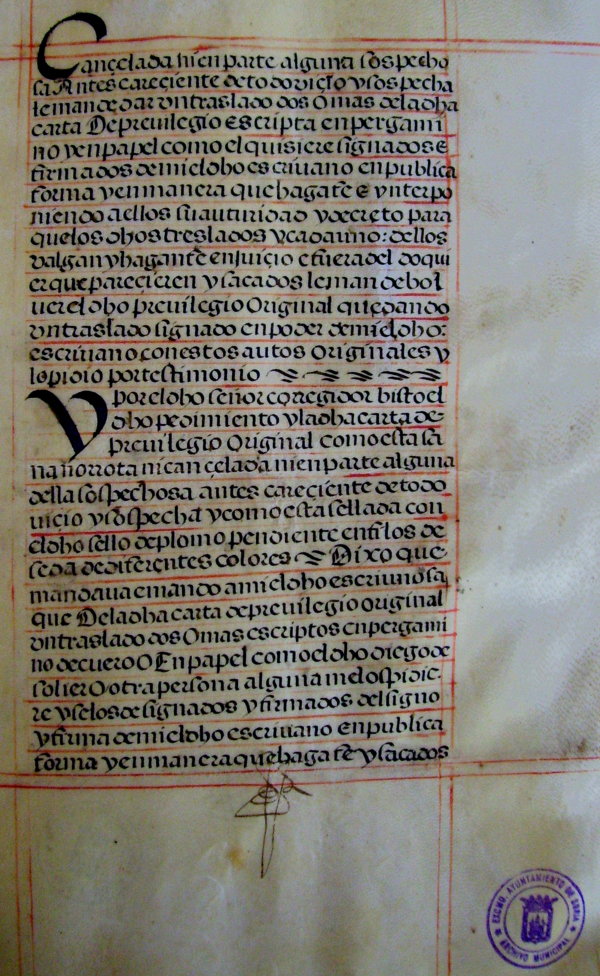 Cançelada ni en parte alguna sospecho
sa Antes careçiente de todo viçio y sospecha
le mande dar vn traslado dos O mas de la dha
carta De preuilegio escripta en pergami
no y en papel como el quisiere signados E
firmados de mi el dho escriuano en publica
forma y en manera que haga fe E ynterpo
niendo a ellos su auturidad y decreto para
que los dhos treslados y cada uno: dellos
valgan y hagan fe en juiçio e fuera del do qui
er que pareçieren y sacados le mande bol
uer el dho preuilegio Original quedando
vn traslado signado en poder de mi el dho:
escriuano con estos autos Originales y
lo pidio por testimonio
Y por el dho señor coregidor bisto el
dho pedimiento y la dha carta de
preuilegio Original como esta sa
na no rrota ni cançelada ni en parte alguna
della sospechosa antes careçiente de todo
uicio y sospecha y como esta sellada con
el dho sello de plomo pendiente en filos de
seda de diferentes colores Dixo que
mandaua e mando a mi el dho escriuno sa
que De la dha carta de preuilegio original
vn traslado dos O mas escriptos en pergami
no de cuero O En papel como el dho diego de
solier O otra persona alguna me lo spidie
re y se los de signados y firmados del signo
y firma de mi el dho escriuano en publica
forma y en manera que haga fe y sacados
EXCMO. AYUNTAMIENTO DE SORIA
ARCHIVO MUNICIPAL